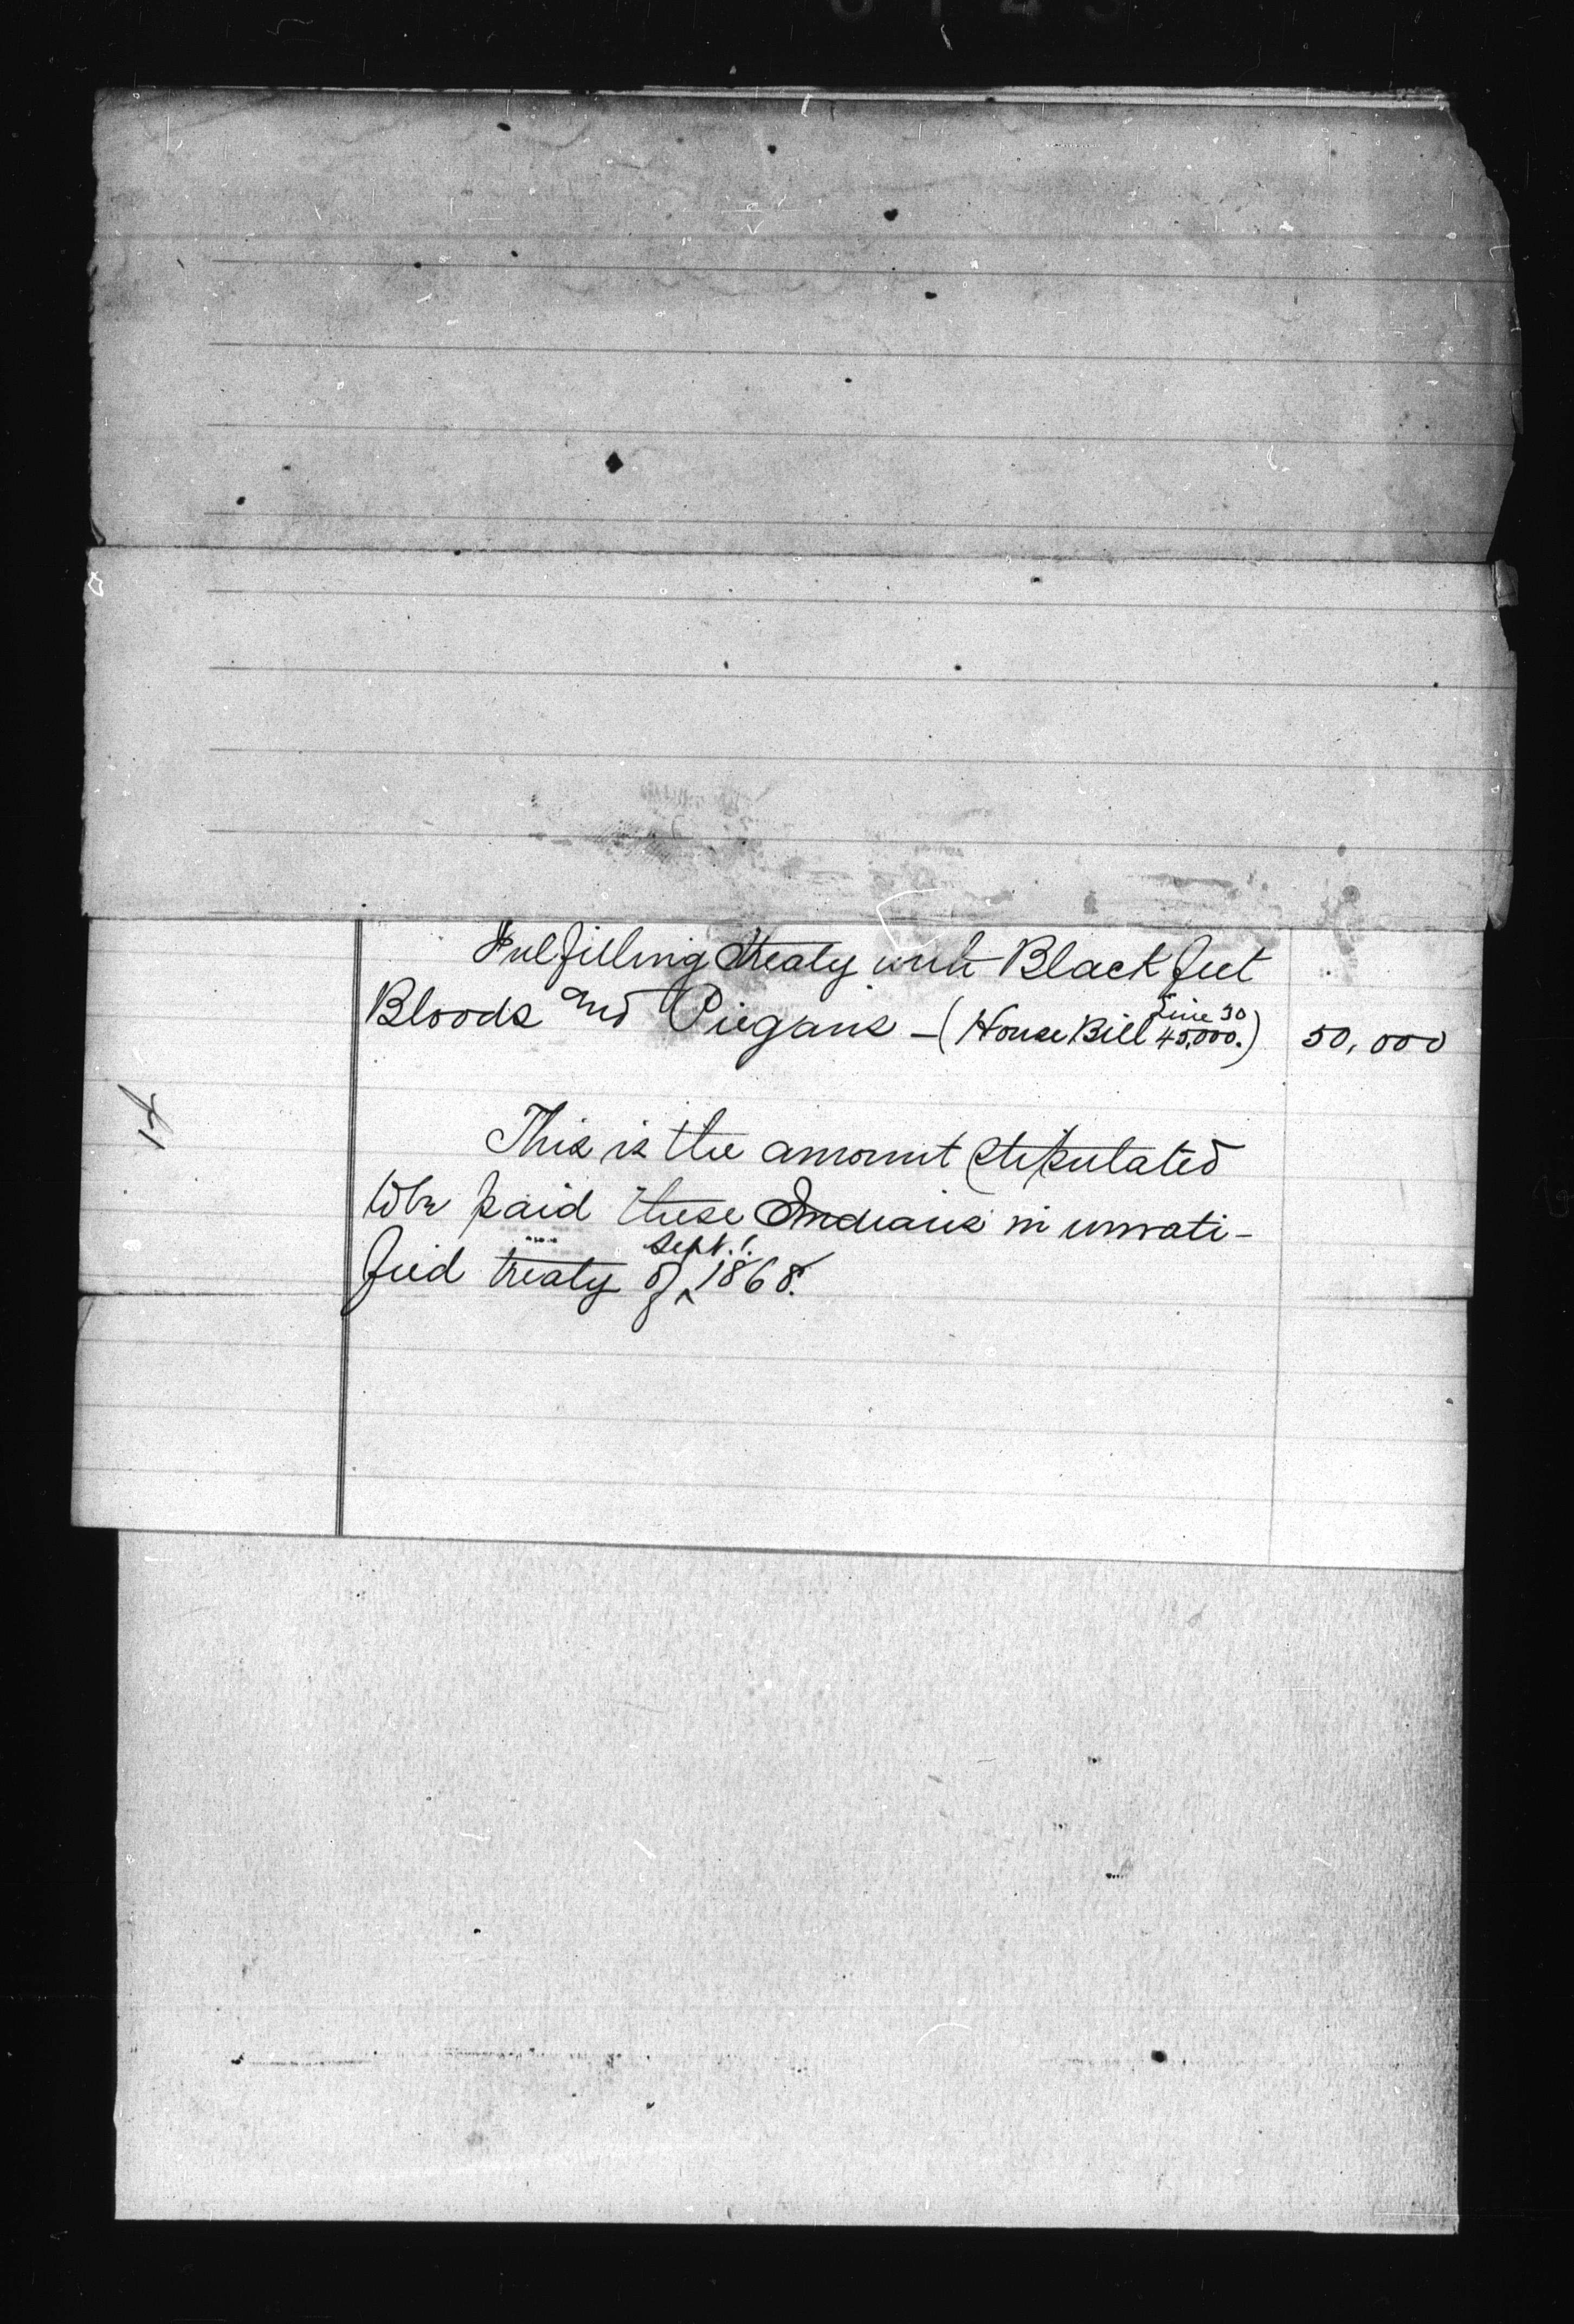 Fulfilling treaty with Blackfeet
Bloods and Piegans - (House Bill Line 30 45,000.) 50,000
This is the amount stipulated
to be paid these Indians in unrati-
fied treaty of ^ Sept. 1. 1868.